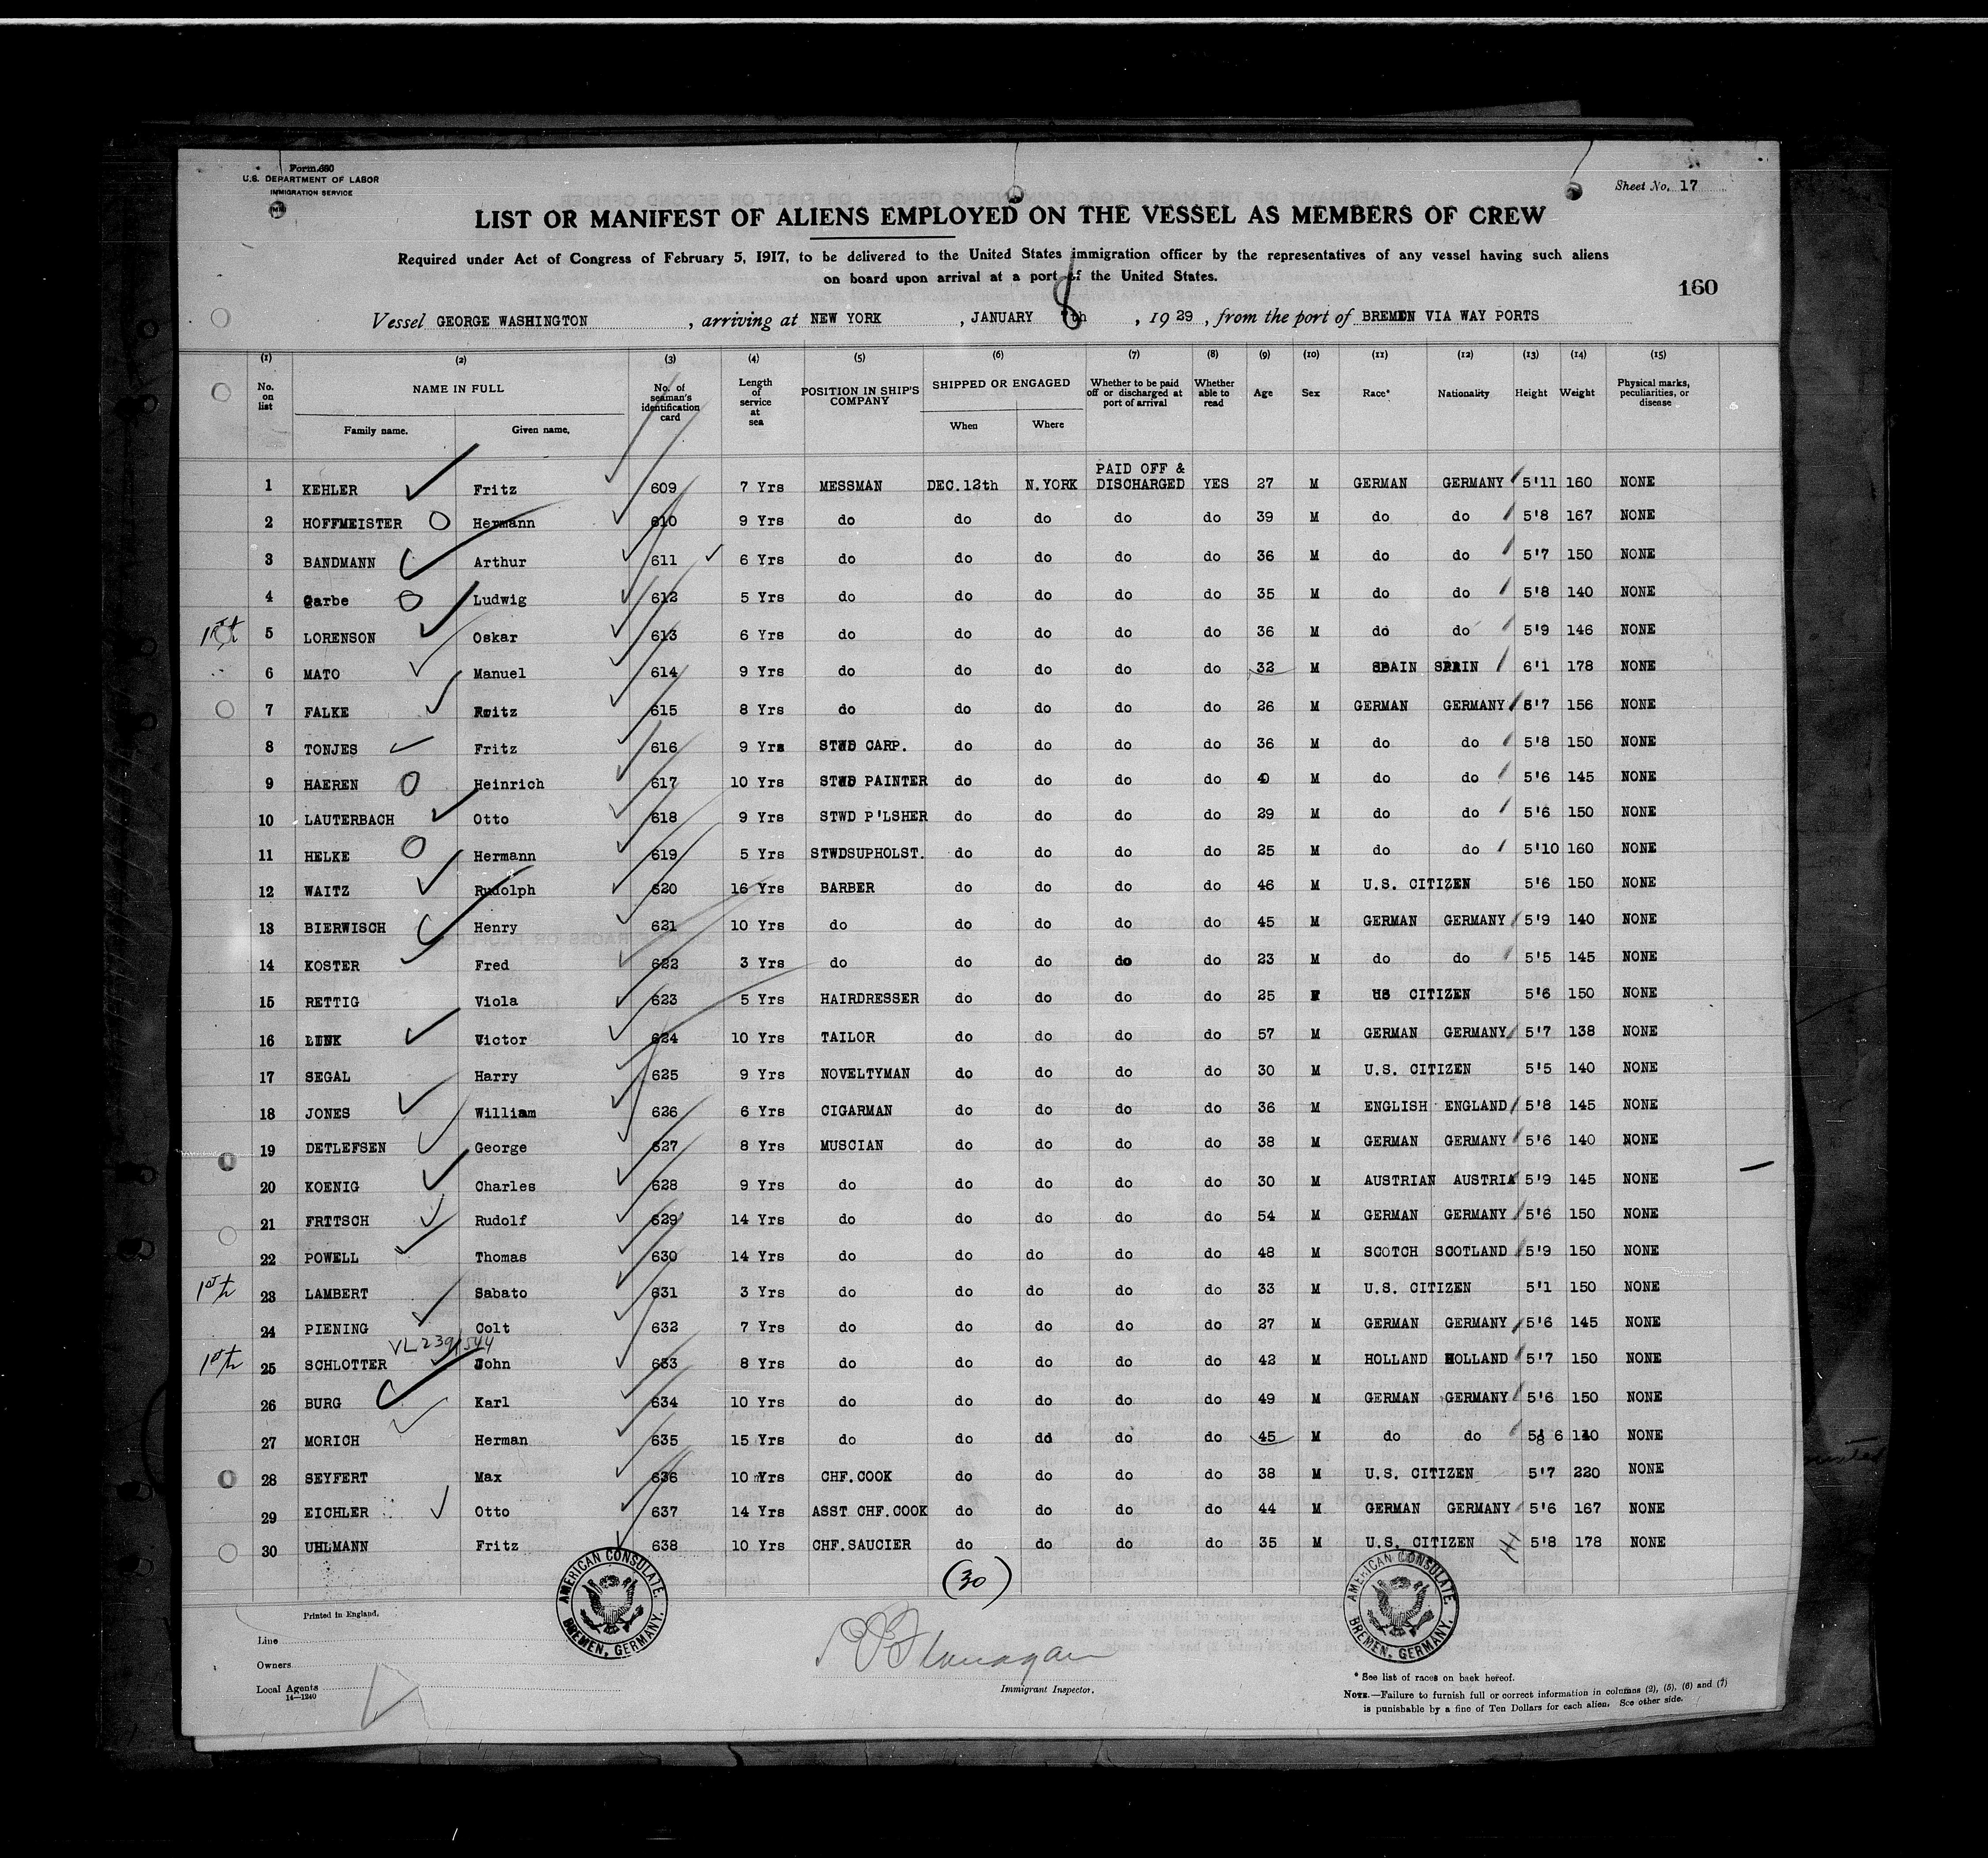 Form 680
U.S. DEPARTMENT OF LABOR
IMMIGRATION SERVICE
Sheet No. 17
LIST OR MANIFEST OF ALIENS EMPLOYED ON THE VESSEL AS MEMBERS OF CREW
Required under Act of Congress of February 5, 1917, to be delivered to the United States immigration officer by the representatives of any vessel having such aliens
on board upon arrival at a port of the United States.
160
Vessel GEORGE WASHINGTON, arriving at NEW YORK, JANUARY 8th, 1929, from the port of BREMEN VIA WAY PORTS
(1) (2) (3) (4) (5) (6) (7) (8) (9) (10) (11) (12) (13) (14) (15)
No. on list NAME IN FULL Family name. Given name. No. of seaman's identification card Length of service at sea POSITION IN SHIP'S COMPANY SHIPPED OR ENGAGED When Where Whether to be paid off or discharged at port of arrival Whether able to read Age Sex Race* Nationality Height Weight Physical marks, peculiarities, or disease
1 KEHLER Fritz 609 7 Yrs MESSMAN DEC.12th N.YORK PAID OFF & DISCHARGED YES 27 M GERMAN GERMANY 5'11 160 NONE
2 HOFFMEISTER Hermann 610 9 Yrs do do do do do 39 M do do 5'8 167 NONE
3 BANDMANN Arthur 611 6 Yrs do do do do do 36 M do do 5'7 150 NONE
4 Garbe Ludwig 612 5 Yrs do do do do do 35 M do do 5'8 140 NONE
1st 5 LORENSON Oskar 613 6 Yrs do do do do do 36 M do do 5'9 146 NONE
6 MATO Manuel 614 9 Yrs do do do do do 32 M SPAIN SPAIN 6'1 178 NONE
7 FALKE Fritz 615 8 Yrs do do do do do 26 M GERMAN GERMANY 5'7 156 NONE
8 TONJES Fritz 616 9 Yrs STWD CARP. do do do do 36 M do do 5'8 150 NONE
9 HAEREN Heinrich 617 10 Yrs STWD PAINTER do do do do 40 M do do 5'6 145 NONE
10 LAUTERBACH Otto 618 9 Yrs STWD P'LSHER do do do do 29 M do do 5'6 150 NONE
11 HELKE Hermann 619 5 Yrs STWDSUPHOLST. do do do do 25 M do do 5'10 160 NONE
12 WAITZ Rudolph 620 16 Yrs BARBER do do do do 46 M U.S. CITIZEN 5'6 150 NONE
13 BIERWISCH Henry 621 10 Yrs do do do do do 45 M GERMAN GERMANY 5'9 140 NONE
14 KOSTER Fred 622 3 Yrs do do do do do 23 M do do 5'5 145 NONE
15 RETTIG Viola 623 5 Yrs HAIRDRESSER do do do do 25 F US CITIZEN 5'6 150 NONE
16 LINK Victor 624 10 Yrs TAILOR do do do do 57 M GERMAN GERMANY 5'7 138 NONE
17 SEGAL Harry 625 9 Yrs NOVELTYMAN do do do do 30 M U.S. CITIZEN 5'5 140 NONE
18 JONES William 626 6 Yrs CIGARMAN do do do do 36 M ENGLISH ENGLAND 5'8 145 NONE
19 DETLEFSEN George 627 8 Yrs MUSCIAN do do do do 38 M GERMAN GERMANY 5'6 140 NONE
20 KOENIG Charles 628 9 Yrs do do do do do 30 M AUSTRIAN AUSTRIA 5'9 145 NONE
21 FRTTSCH Rudolf 629 14 Yrs do do do do do 54 M GERMAN GERMANY 5'6 150 NONE
22 POWELL Thomas 630 14 Yrs do do do do do 48 M SCOTCH SCOTLAND 5'9 150 NONE
1st 23 LAMBERT Sabato 631 3 Yrs do do do do do 33 M U.S. CITIZEN 5'1 150 NONE
24 PIENING Colt 632 7 Yrs do do do do do 27 M GERMAN GERMANY 5'6 145 NONE
VL 2391544
1st 25 SCHLOTTER John 633 8 Yrs do do do do do 42 M HOLLAND HOLLAND 5'7 150 NONE
26 BURG Karl 634 10 Yrs do do do do do 49 M GERMAN GERMANY 5'6 150 NONE
27 MORICH Herman 635 15 Yrs do do do do do 45 M do do 5' 6 140 NONE
28 SEYFERT Max 636 10 Yrs CHF.COOK do do do do 38 M U.S. CITIZEN 5'7 220 NONE
29 EICHLER Otto 637 14 Yrs ASST CHF.COOK do do do do 44 M GERMAN GERMANY 5'6 167 NONE
30 UHLMANN Fritz 638 10 Yrs CHF.SAUCIER do do do do 35 M U.S. CITIZEN 5'8 178 NONE
(30)
AMERICAN CONSULATE. BREMEN, GERMANY.
AMERICAN CONSULATE. BREMEN, GERMANY.
Printed in England.
Line
Owners
Local Agents
14—1240
Flanagan
Immigrant Inspector.
* See list of races on back hereof.
NOTE.—Failure to furnish full or correct information in columns (2), (5), (6) and (7)
is punishable by a fine of Ten Dollars for each alien. See other side.